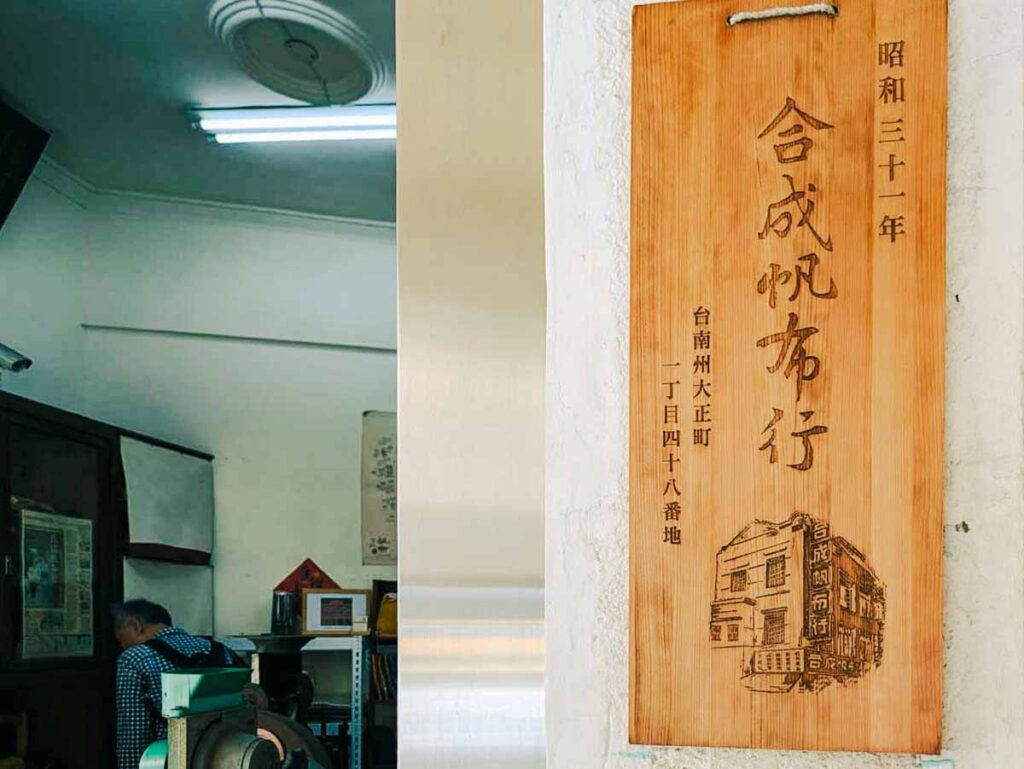 昭和三十一年
合成帆布行
台南州大正町
一丁目四十八番地
合成帆布行
合成帆布行